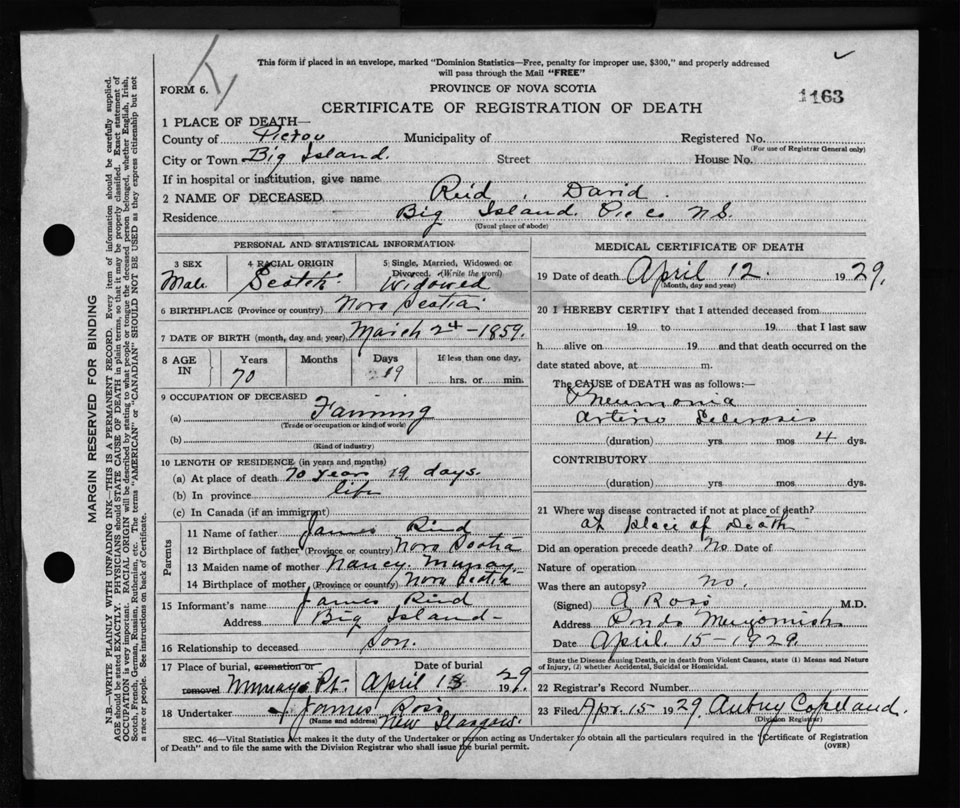 K
This form if placed in an envelope, marked "Dominion Statistics—Free, penalty for improper use, $300," and properly addressed
will pass through the Mail "FREE"
FORM 6.
PROVINCE OF NOVA SCOTIA
1163
CERTIFICATE OF REGISTRATION OF DEATH
1 PLACE OF DEATH—
County of Pictou Municipality of Registered No.
(For use of Registrar General only)
City or Town Big Island. Street House No.
If in hospital or institution, give name
2 NAME OF DECEASED Reid, David
Residence Big Island. Pic co N.S.
(Usual place of abode)
PERSONAL AND STATISTICAL INFORMATION
3 SEX 4 RACIAL ORIGIN 5 Single, Married, Widowed or
Divorced. (Write the word)
Male Scotch Widowed
6 BIRTHPLACE (Province or country) Nova Scotia
7 DATE OF BIRTH (month, day and year) March 24 - 1859.
8 AGE IN Years Months Days If less than one day,
70 19 hrs. or min.
9 OCCUPATION OF DECEASED
(a) Farming
(Trade or occupation or kind of work)
(b)
(Kind of industry)
10 LENGTH OF RESIDENCE (in years and months)
(a) At place of death 70 years 19 days.
(b) In province life
(c) In Canada (if an immigrant)
Parents
11 Name of father James Reid
12 Birthplace of father (Province or country) Nova Scotia
13 Maiden name of mother Nancy Murray
14 Birthplace of mother (Province or country) Nova Scotia
15 Informant's name James Reid
Address Big Island-
16 Relationship to deceased Son.
17 Place of burial, cremation or Date of burial
removal Murrays Pt. April 1929.
18 Undertaker James Ross
(Name and address) New Glasgow.
MEDICAL CERTIFICATE OF DEATH
19 Date of death April 12. 1929.
(Month, day and year)
20 I HEREBY CERTIFY that I attended deceased from
19 to 19 that I last saw
h alive on 19 and that death occurred on the
date stated above, at m.
The CAUSE of DEATH was as follows:—
Pneumonia
Arterio Sclerosis
(duration) yrs. mos 4 dys.
CONTRIBUTORY
(duration) yrs. mos. dys.
21 Where was disease contracted if not at place of death?
at place of Death
Did an operation precede death? No Date of
Nature of operation
Was there an autopsy? no.
(Signed) A Ross M.D.
Address Ponds Merigomish
Date April. 15 - 1929.
State the Disease Causing Death, or in death from Violent Causes, state (1) Means and Nature
of Injury, (2) whether Accidental, Suicidal or Homicidal.
22 Registrar's Record Number
23 Filed Apr. 15 1929 Aubrey Copeland.
(Division Registrar)
SEC. 46—Vital Statistics Act makes it the duty of the Undertaker or person acting as Undertaker to obtain all the particulars required in the Certificate of Registration
of Death" and to file the same with the Division Registrar who shall issue the burial permit.
(OVER)
MARGIN RESERVED FOR BINDING
N.B—WRITE PLAINLY WITH UNFADING INK—THIS IS A PERMANENT RECORD. Every item of information should be carefully supplied.
AGE should be stated EXACTLY. PHYSICIANS should STATE CAUSE OF DEATH in plain terms, so that it may be properly classified. Exact statement of
OCCUPATION is very important. RACIAL ORIGIN will be described by stating to what people or tongue the deceased person belonged, whether English, Irish,
Scotch, French, German, Russian, Ruthenian, etc. The terms "AMERICAN" or "CANADIAN" SHOULD NOT BE USED as they express citizenship but not
a race or people. See instructions on back of Certificate.